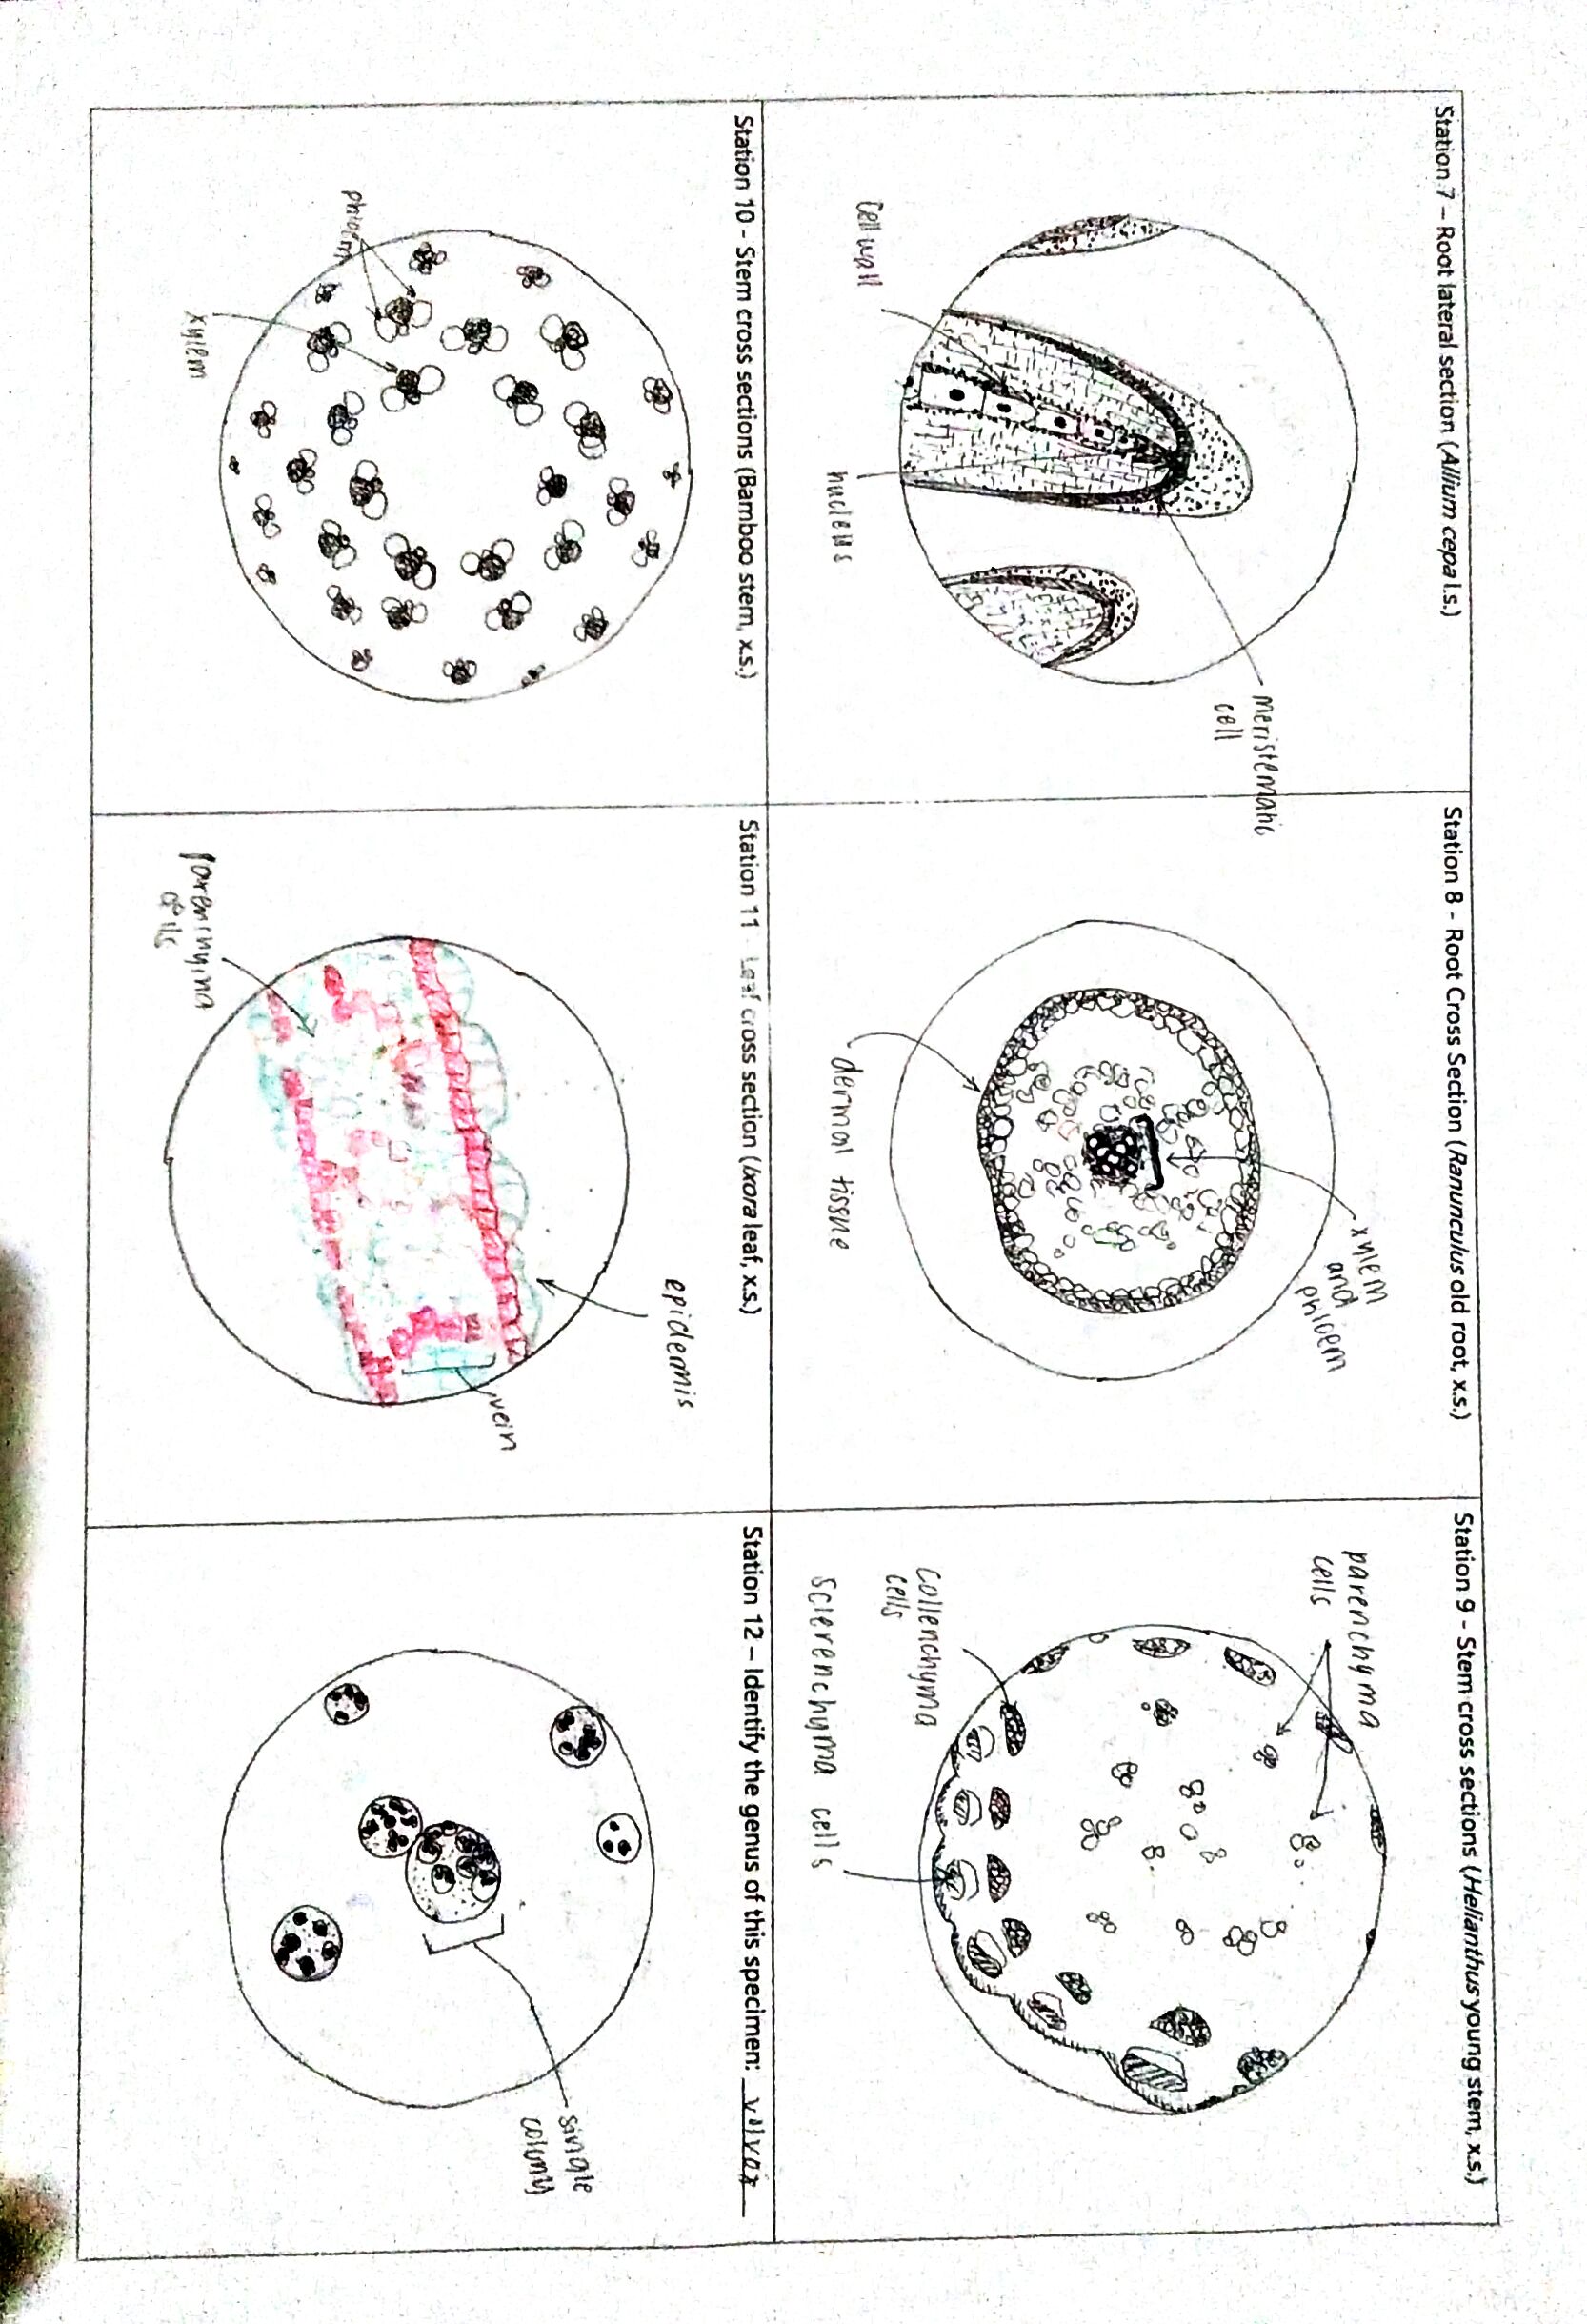 Station 7 – Root lateral section (Allium cepa l.s.)
cell wall
nucleus
meristematic
cell
Station 8 - Root Cross Section (Ranunculus old root, x.s.)
xylem
and
phloem
dermal tissue
Station 9 - Stem cross sections (Helianthus young stem, x.s.)
parenchyma
cells
collenchyma
cells
sclerenchyma cells
Station 10 - Stem cross sections (Bamboo stem, x.s.)
phloem
xylem
Station 11 - Leaf cross section (Ixora leaf, x.s.)
epidermis
vein
parenchyma
cells
Station 12 – Identify the genus of this specimen: volvox
single
colony